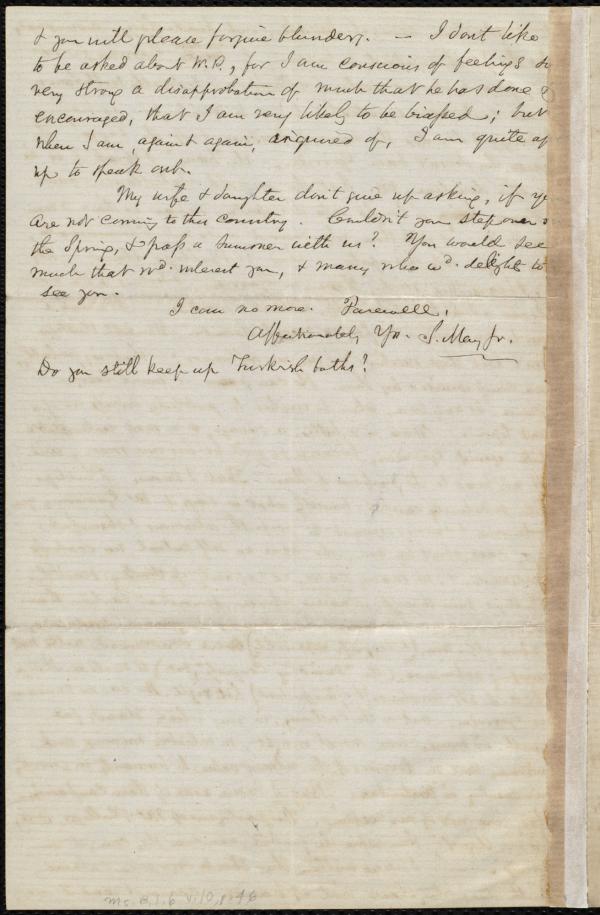 & you will please forgive blunders. — I don't like
to be asked about W.P., for I am conscious of feelings so
very strong a disapprobation of much that he has done &
encouraged, that I am very likely to be biassed; but
when I am, again & again, enquired of, I am quite ap
up to speak out.
My wife & daughter don't give up asking, if yo
are not coming to this country. Couldn't you step over
the Spring, & pass a summer with us? You would see
much that wd. interest you, & many who wd. delight to
see you.
I can no more. Farewell.
Affectionately Yrs. S. May Jr.
Do you still keep up Turkish baths?
Ms. B.1.6 v.10, p.